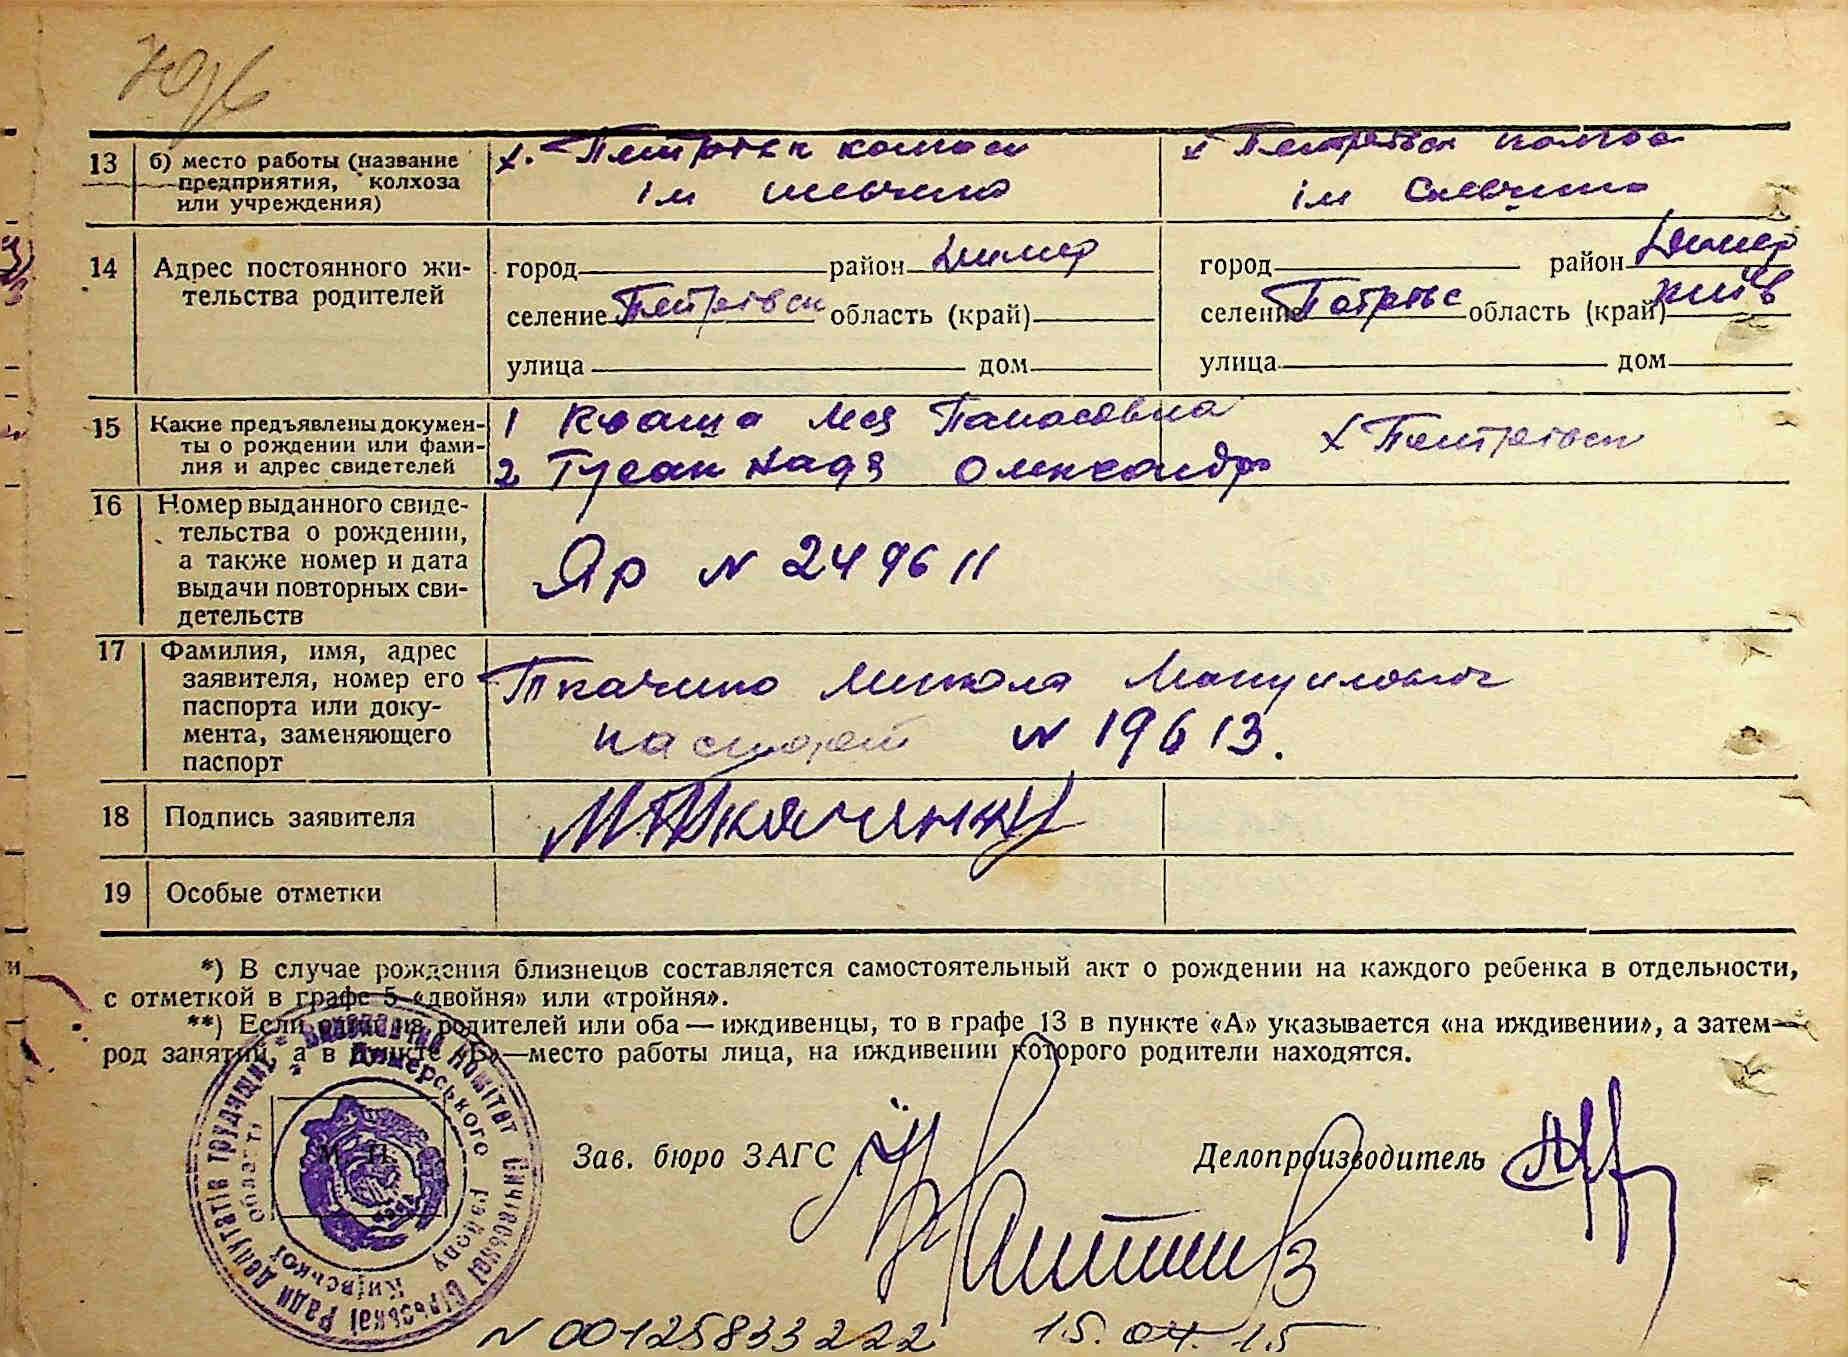 13 б) место работы (название предприятия, колхоза или учреждения)
х. Петрівск колгосп
ім
х Петрівск колгосп
ім
14 Адрес постоянного жительства родителей
город район Димер
селение Петрівск область (край)
улица дом
город район Димер
селение Петрівс область (край) Київ
улица дом
15 Какие предъявлены документы о рождении или фамилия и адрес свидетелей
1 Кваша Панасовна
2 Гусак Надя Олександр
х Петрівск
16 Номер выданного свидетельства о рождении, а также номер и дата выдачи повторных свидетельств
Яр N 249611
17 Фамилия, имя, адрес заявителя, номер его паспорта или документа, заменяющего паспорт
Ткаченко Микола Мануилович
паспорт N 19613.
18 Подпись заявителя
М Ткаченко
19 Особые отметки
*) В случае рождения близнецов составляется самостоятельный акт о рождении на каждого ребенка в отдельности,
с отметкой в графе 5 «двойня» или «тройня».
**) Если один из родителей или оба — иждивенцы, то в графе 13 в пункте «А» указывается «на иждивении», а затем—
род занятий, а в пункте «Б»—место работы лица, на иждивении которого родители находятся.
Виконавчий комітет сільської Ради депутатів трудящих
Димерського району Київської області
М. П.
Зав. бюро ЗАГС
Делопроизводитель
N 00125833222 15.04.15